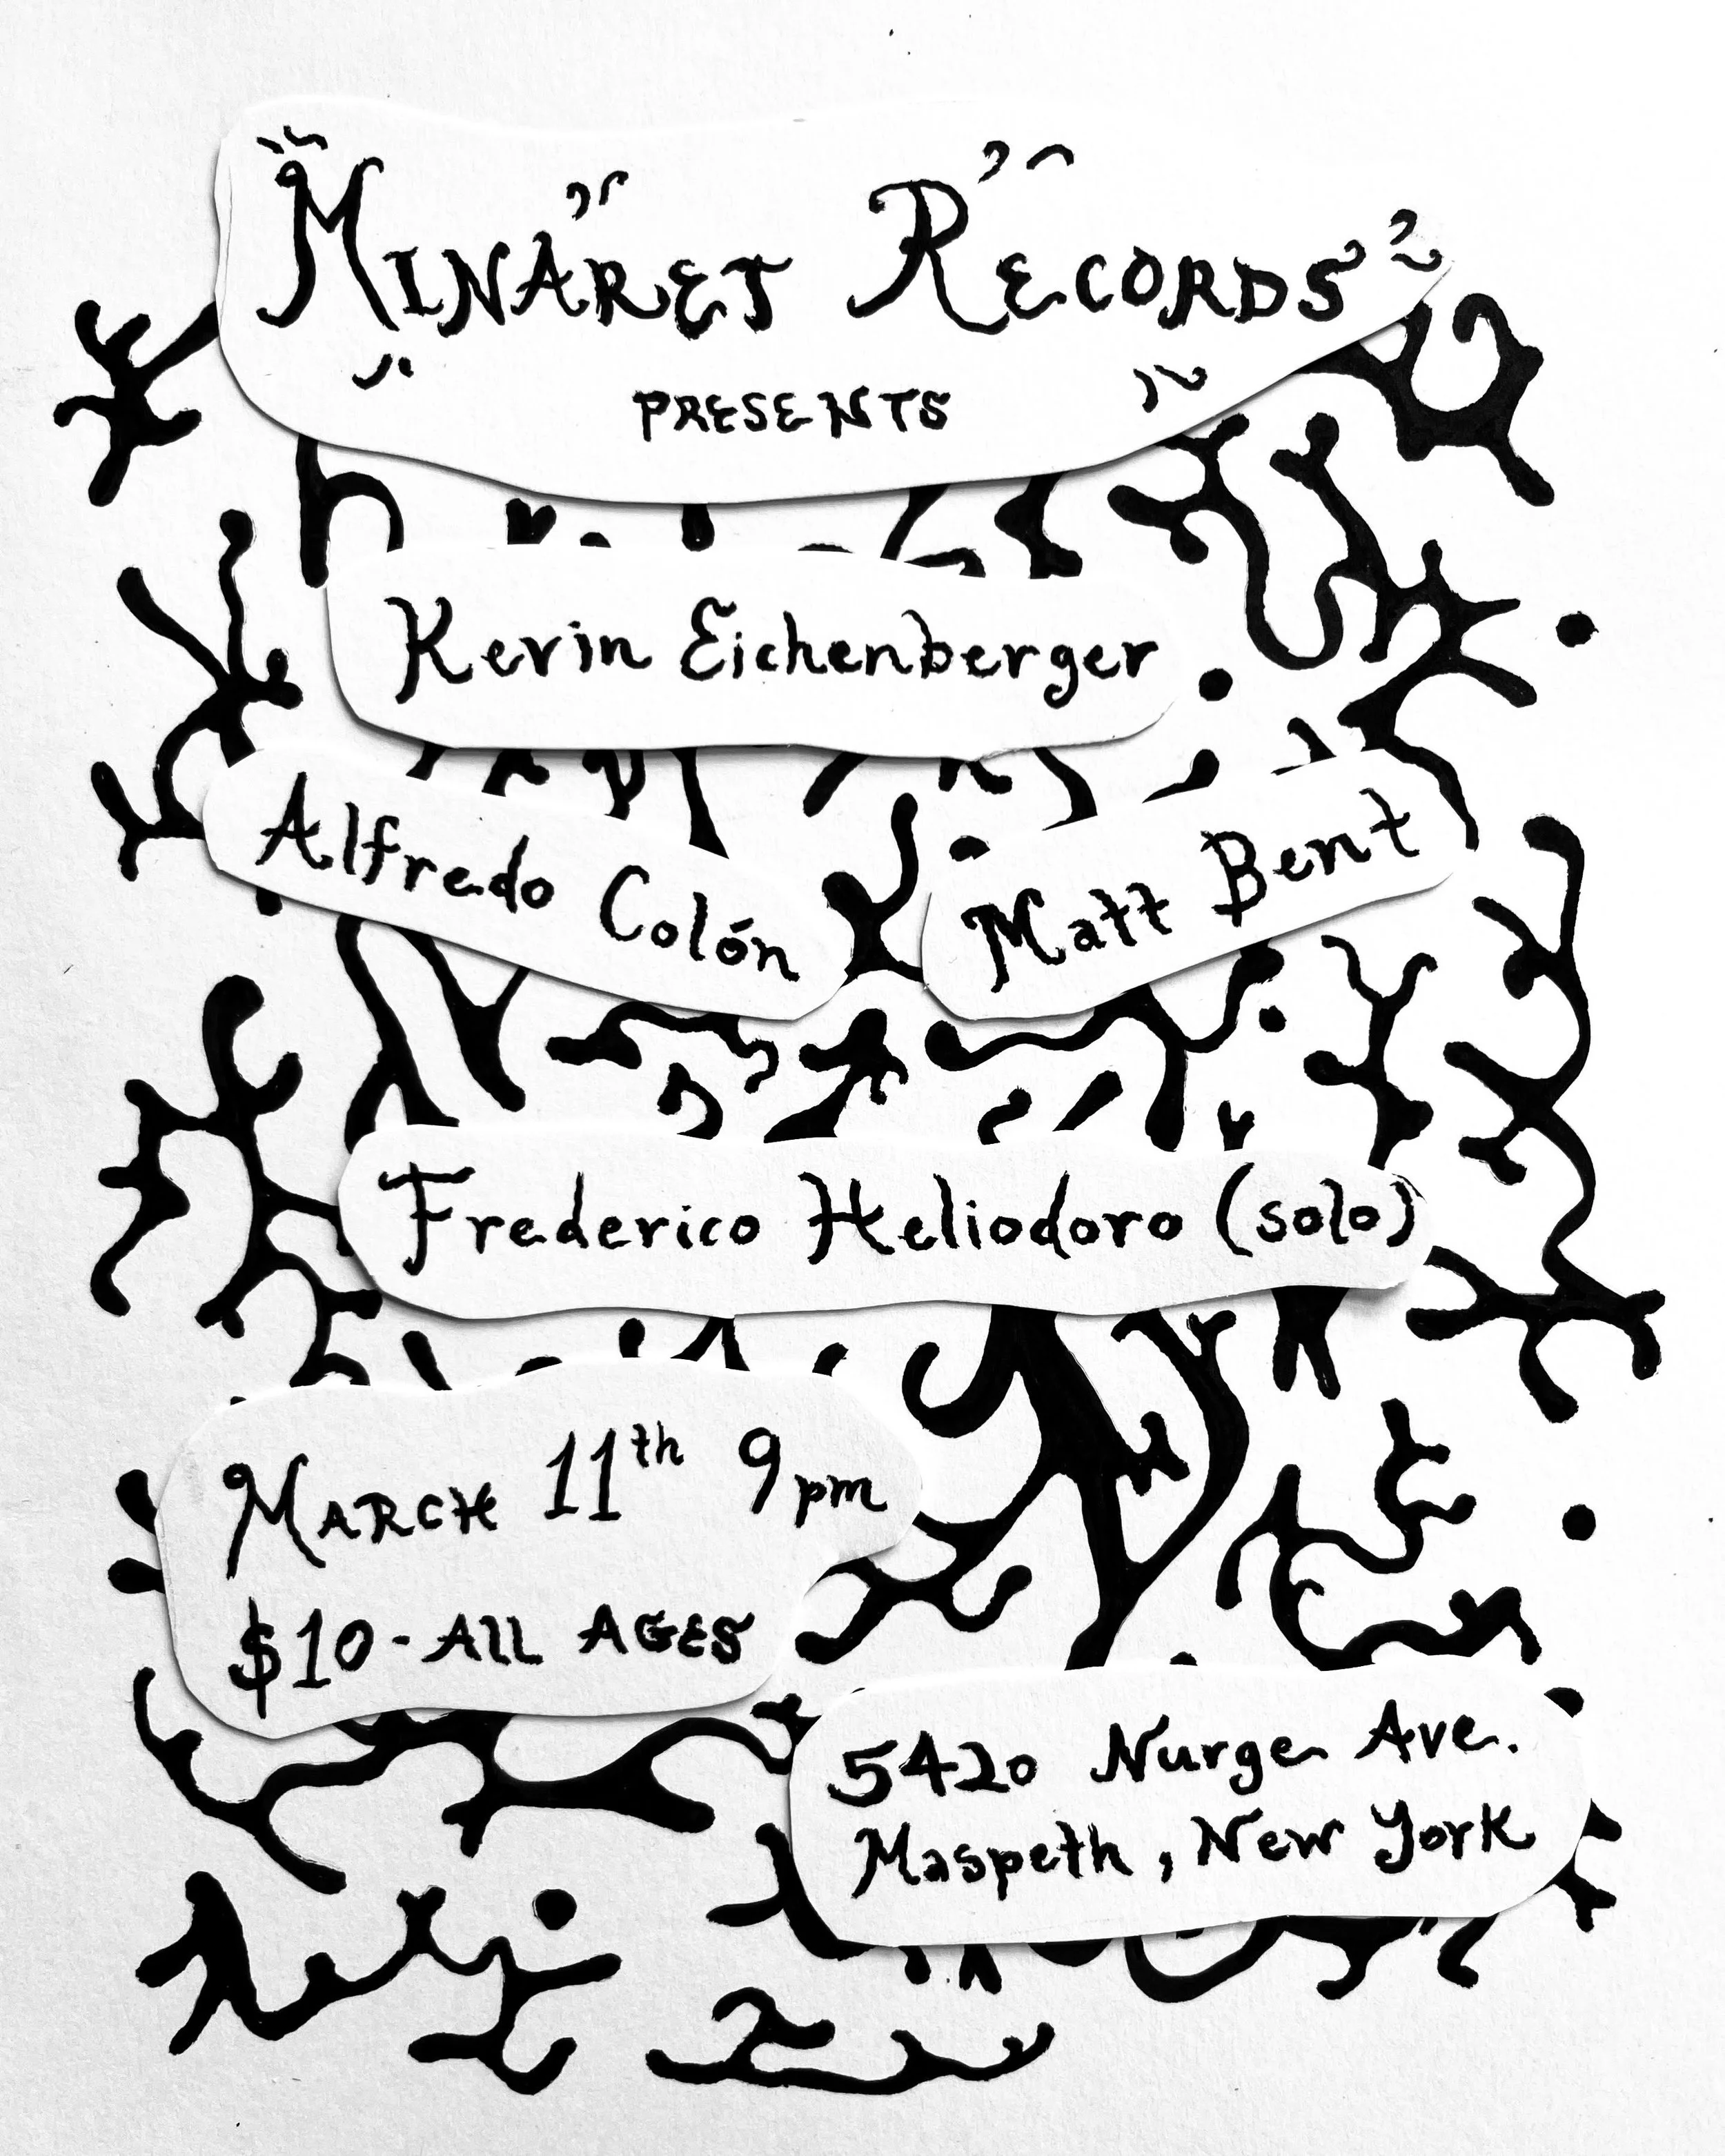 MINARET RECORDS
PRESENTS
Kevin Eichenberger
Alfredo Colón
Matt Bent
Frederico Heliodoro (solo)
MARCH 11th 9pm
$10-All AGES
5420 Nurge Ave.
Maspeth, New York